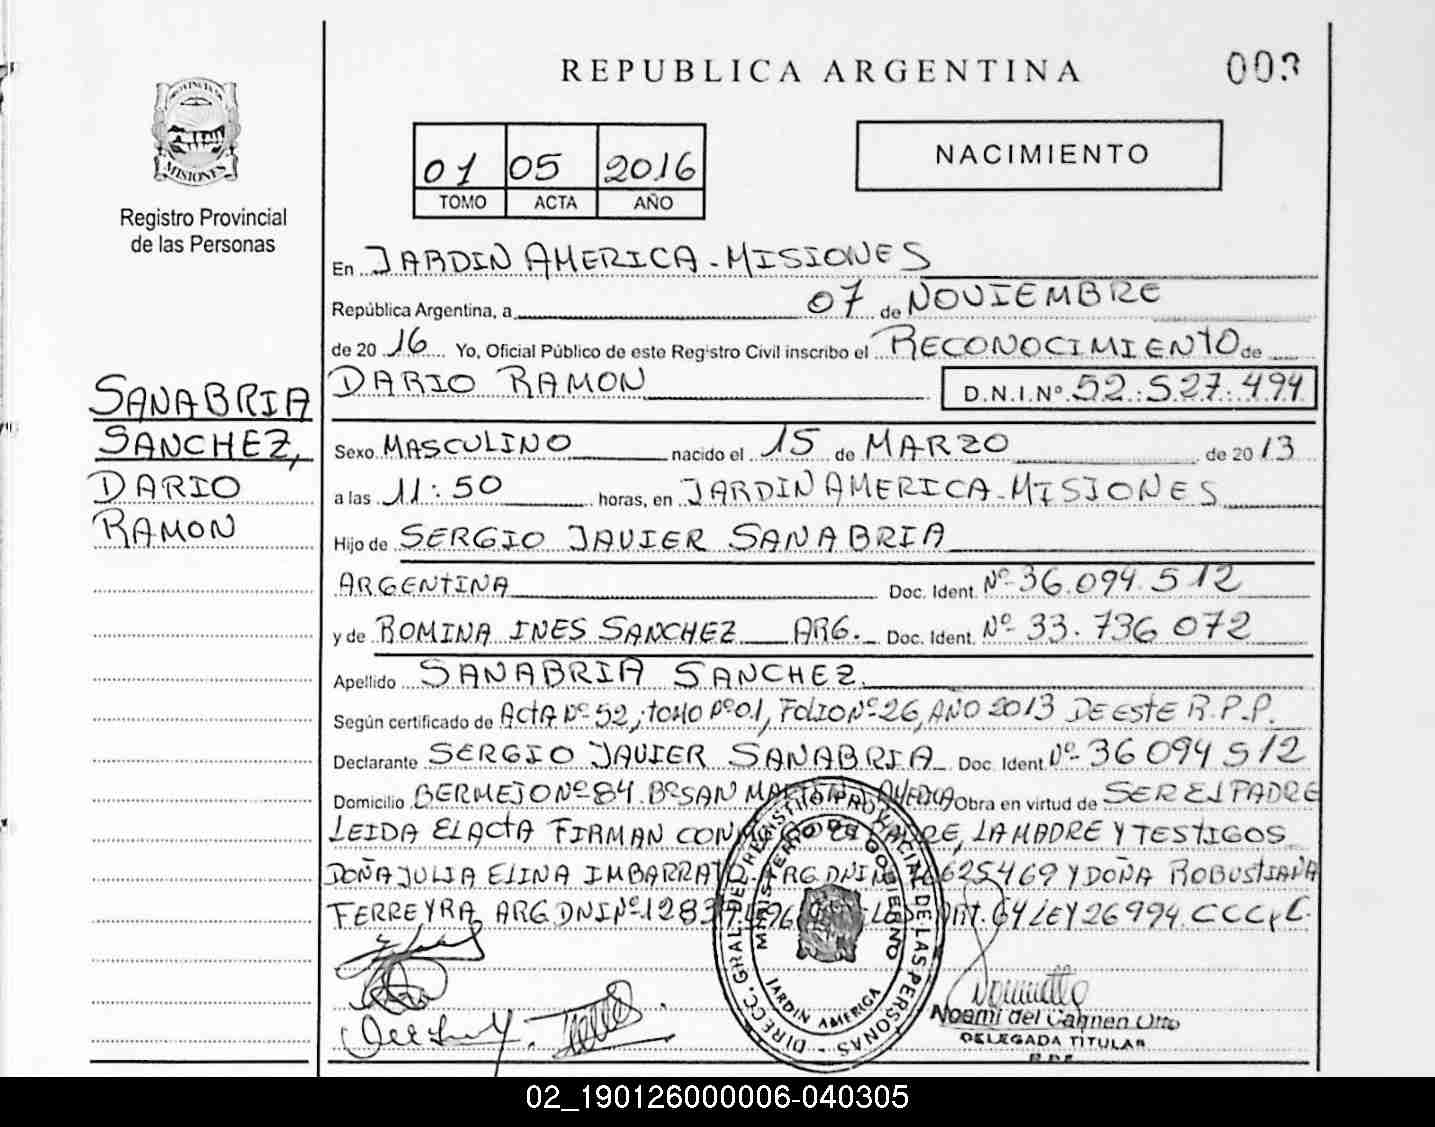 REPUBLICA ARGENTINA
003
PROVINCIA DE
MISIONES
Registro Provincial
de las Personas
01 05 2016
TOMO ACTA AÑO
NACIMIENTO
En JARDIN AMERICA - MISIONES
República Argentina, a 07 de NOVIEMBRE
de 20 16 Yo, Oficial Público de este Registro Civil inscribo el RECONOCIMIENTO de
DARIO RAMON D.N.I.Nº 52.527.494
SANABRIA
SANCHEZ,
DARIO
RAMON
Sexo MASCULINO nacido el 15 de MARZO de 20 13
a las 11:50 horas, en JARDIN AMERICA - MISIONES
Hijo de SERGIO JAVIER SANABRIA
ARGENTINA Doc. Ident. Nº 36.094.512
y de ROMINA INES SANCHEZ ARG. Doc. Ident. Nº 33.736 072
Apellido SANABRIA SANCHEZ
Según certificado de ACTA Nº 52, TOMO Nº 01, FOLIO Nº 26, AÑO 2013 DE ESTE R.P.P.
Declarante SERGIO JAVIER SANABRIA Doc. Ident. Nº 36 094 512
Domicilio BERMEJO Nº 84. Bº SAN MARTIN AMERICA Obra en virtud de SER EL PADRE
LEIDA EL ACTA FIRMAN EL PADRE, LA MADRE Y TESTIGOS
DOÑA JULIA ELINA ARG DNI Nº Y DOÑA ROBUSTIANA
FERREYRA ARG DNI Nº ART. 64 LEY 26994. CCC y C.
DIRECC. GRAL. DEL REGISTRO PROVINCIAL DE LAS PERSONAS
MINISTERIO DE GOBIERNO
JARDIN AMERICA
Noemi del Carmen Otto
DELEGADA TITULAR
R.P.P.
02_190126000006-040305